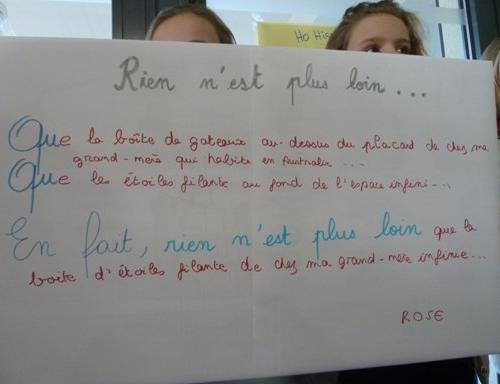 Ho His
Rien n'est plus loin ...
Que la boîte de gateaux au-dessus du placard de chez ma
grand-mère qui habite en Australie ...
Que les étoiles filante au fond de l'espace infini...
En fait, rien n'est plus loin que la
boite d'étoiles filante de chez ma grand-mère infinie...
ROSE